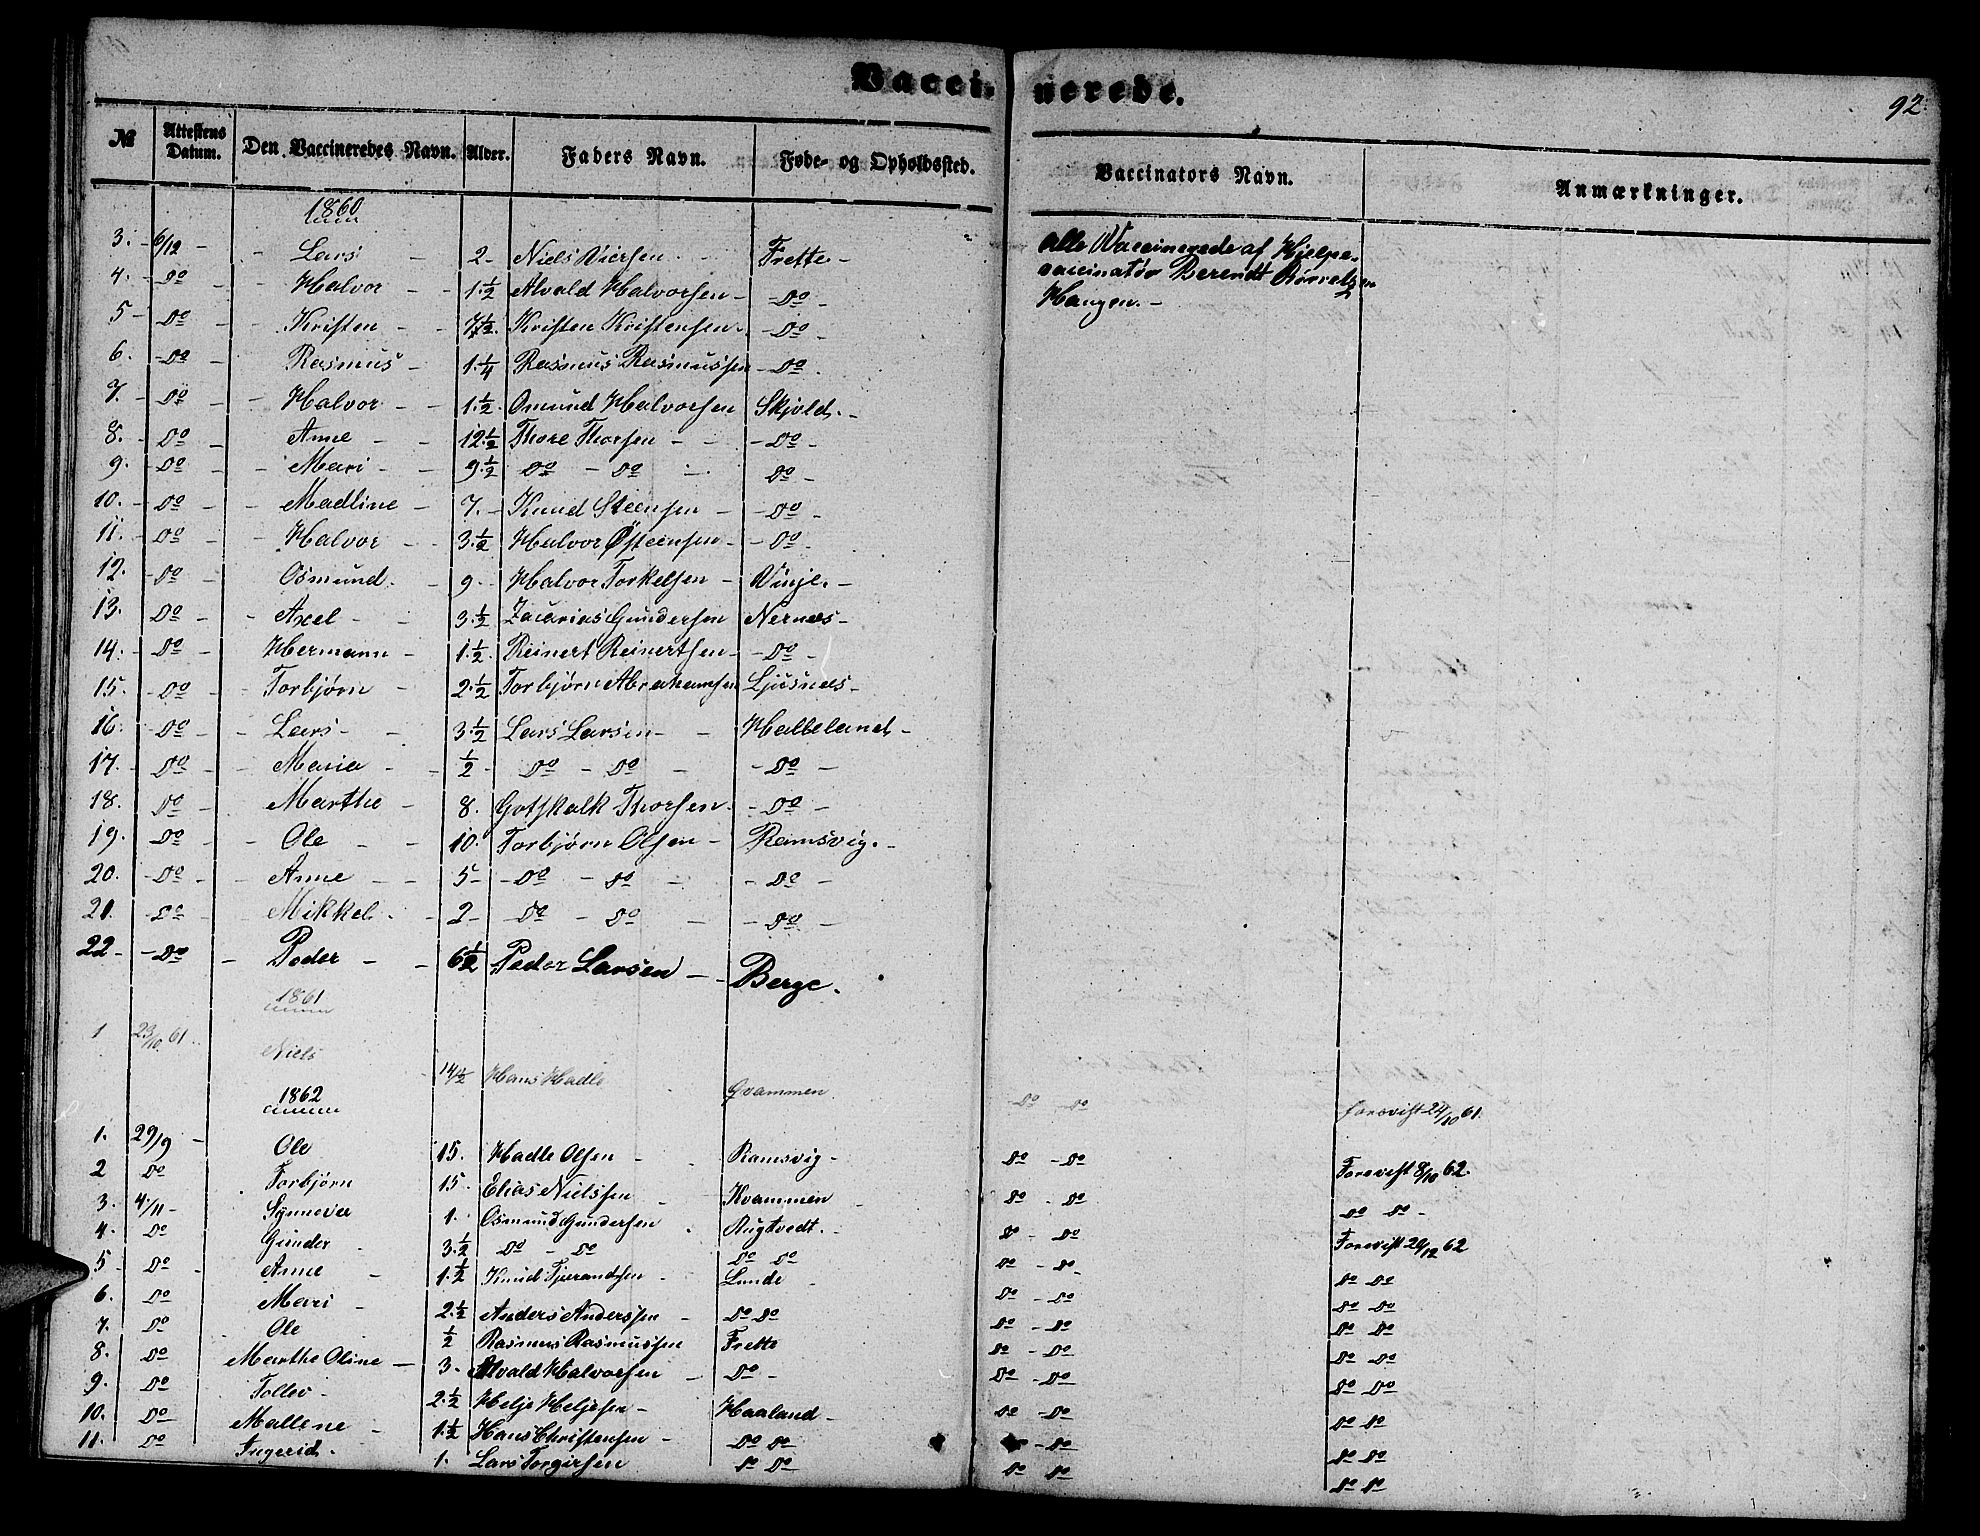 Vaccinerede.
92.
№ Attestens Datum. Den Vaccineredes Navn. Alder. Faders Navn. Føde- og Opholdssted. Vaccinators Navn. Anmærkninger.
1860
3. 6/12 - Lars 2 - Niels Viersen - Frette - Alle Vaccinerede af Hjelpe-
4. - Do - Halvor - 1 1/2 Alvald Halvorsen - Do - vaccinatør Berendt
5 - Do - Kristen - 7 1/2 Kristen Kristensen - Do - Haugen. -
6. - Do - Rasmus - 1 1/4 Rasmus Rasmussen - Do -
7. - Do - Halvor - 1 1/2 Omund Halvorsen Skjold. -
8. - Do - Anne - 12 1/2 Thore Thorsen - Do -
9. - Do - Mari - 9 1/2 Do - Do - Do -
10. - Do - Madline - 7. - Knud Steensen - Do -
11. - Do - Halvor - 3 1/2 Halvor Østeensen - Do -
12. - Do - Osmund. - 9 - Halvor Torkelsen - Vinje. -
13. - Do - Axel - 3 1/2 Zacarias Gundersen Nernæs -
14. - Do - Hermann - 1 1/2 Reinert Reinertsen - Do -
15. - Do - Torbjørn - 2 1/2 Torbjørn Abrahamsen Ljusnæs -
16 - Do - Lars - 3 1/2 Lars Larsen - Halleland -
17. - Do - Maria - 1/2 - Do - Do - Do -
18. - Do - Marthe - 8. Gotskalk Thorsen - Do -
19. - Do - Ole - 10. Torbjørn Olsen - Ramsvig. -
20. - Do - Anne - 5 - Do - Do - Do -
21. - Do - Mikkel - 2 - Do - Do - Do -
22 - Do - Peder - 6 1/2 Peder Larsen - Berge.
1861
1 23/10 61. Niels 14 1/2 Hans Hadle Qvammen Do Do forevist 24/10 61.
1862
1. 29/9 - Ole 15. Hadle Olsen - Ramsvig - Do - Do Forevist 8/10 62.
2 Do Torbjørn 15. Elias Nielssen - Kvammen Do - Do Do Do -
3. 4/11 - Synneva 1. Osmund Gundersen Rugtvedt. - Do - Do Forevist 20/12 62
4. Do Gunder - 3 1/2 Do - Do Do Do Do - Do Do Do
5 Do Anne - 1 1/2 Knud Tjerandsen - Lunde - Do - Do Do Do
6. Do Mari - 2 1/2 Anders Anderssen - Do Do Do - Do Do Do
7. Do Ole 1/2 Rasmus Rasmussen Frette Do - Do Do Do
8. Do Marthe Oline - 3 - Alvald Halvorsen - Do - Do - Do Do Do
9. Do Tollev - 2 1/2 Helje Heljesen - Haaland - Do - Do Do Do
10. Do Mallene - 1 1/2 Hans Christensen - Do Do - Do Do Do
11. Do Ingerid - 1. Lars Torgersen Do Do Do Do Do Do